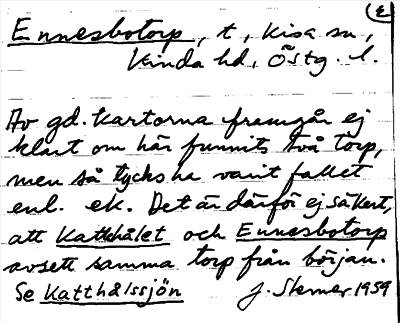 (E)
Ennesbotorp, t, Kisa sn,
Kinda hd, Östg. l.
Av gd. kartorna framgår ej
klart om här funnits två torp,
men så tycks ha varit fallet
enl. ek. Det är därför ej säkert,
att Katthålet och Ennesbotorp
avsett samma torp från början.
Se Katthålssjön J. Stemer 1959